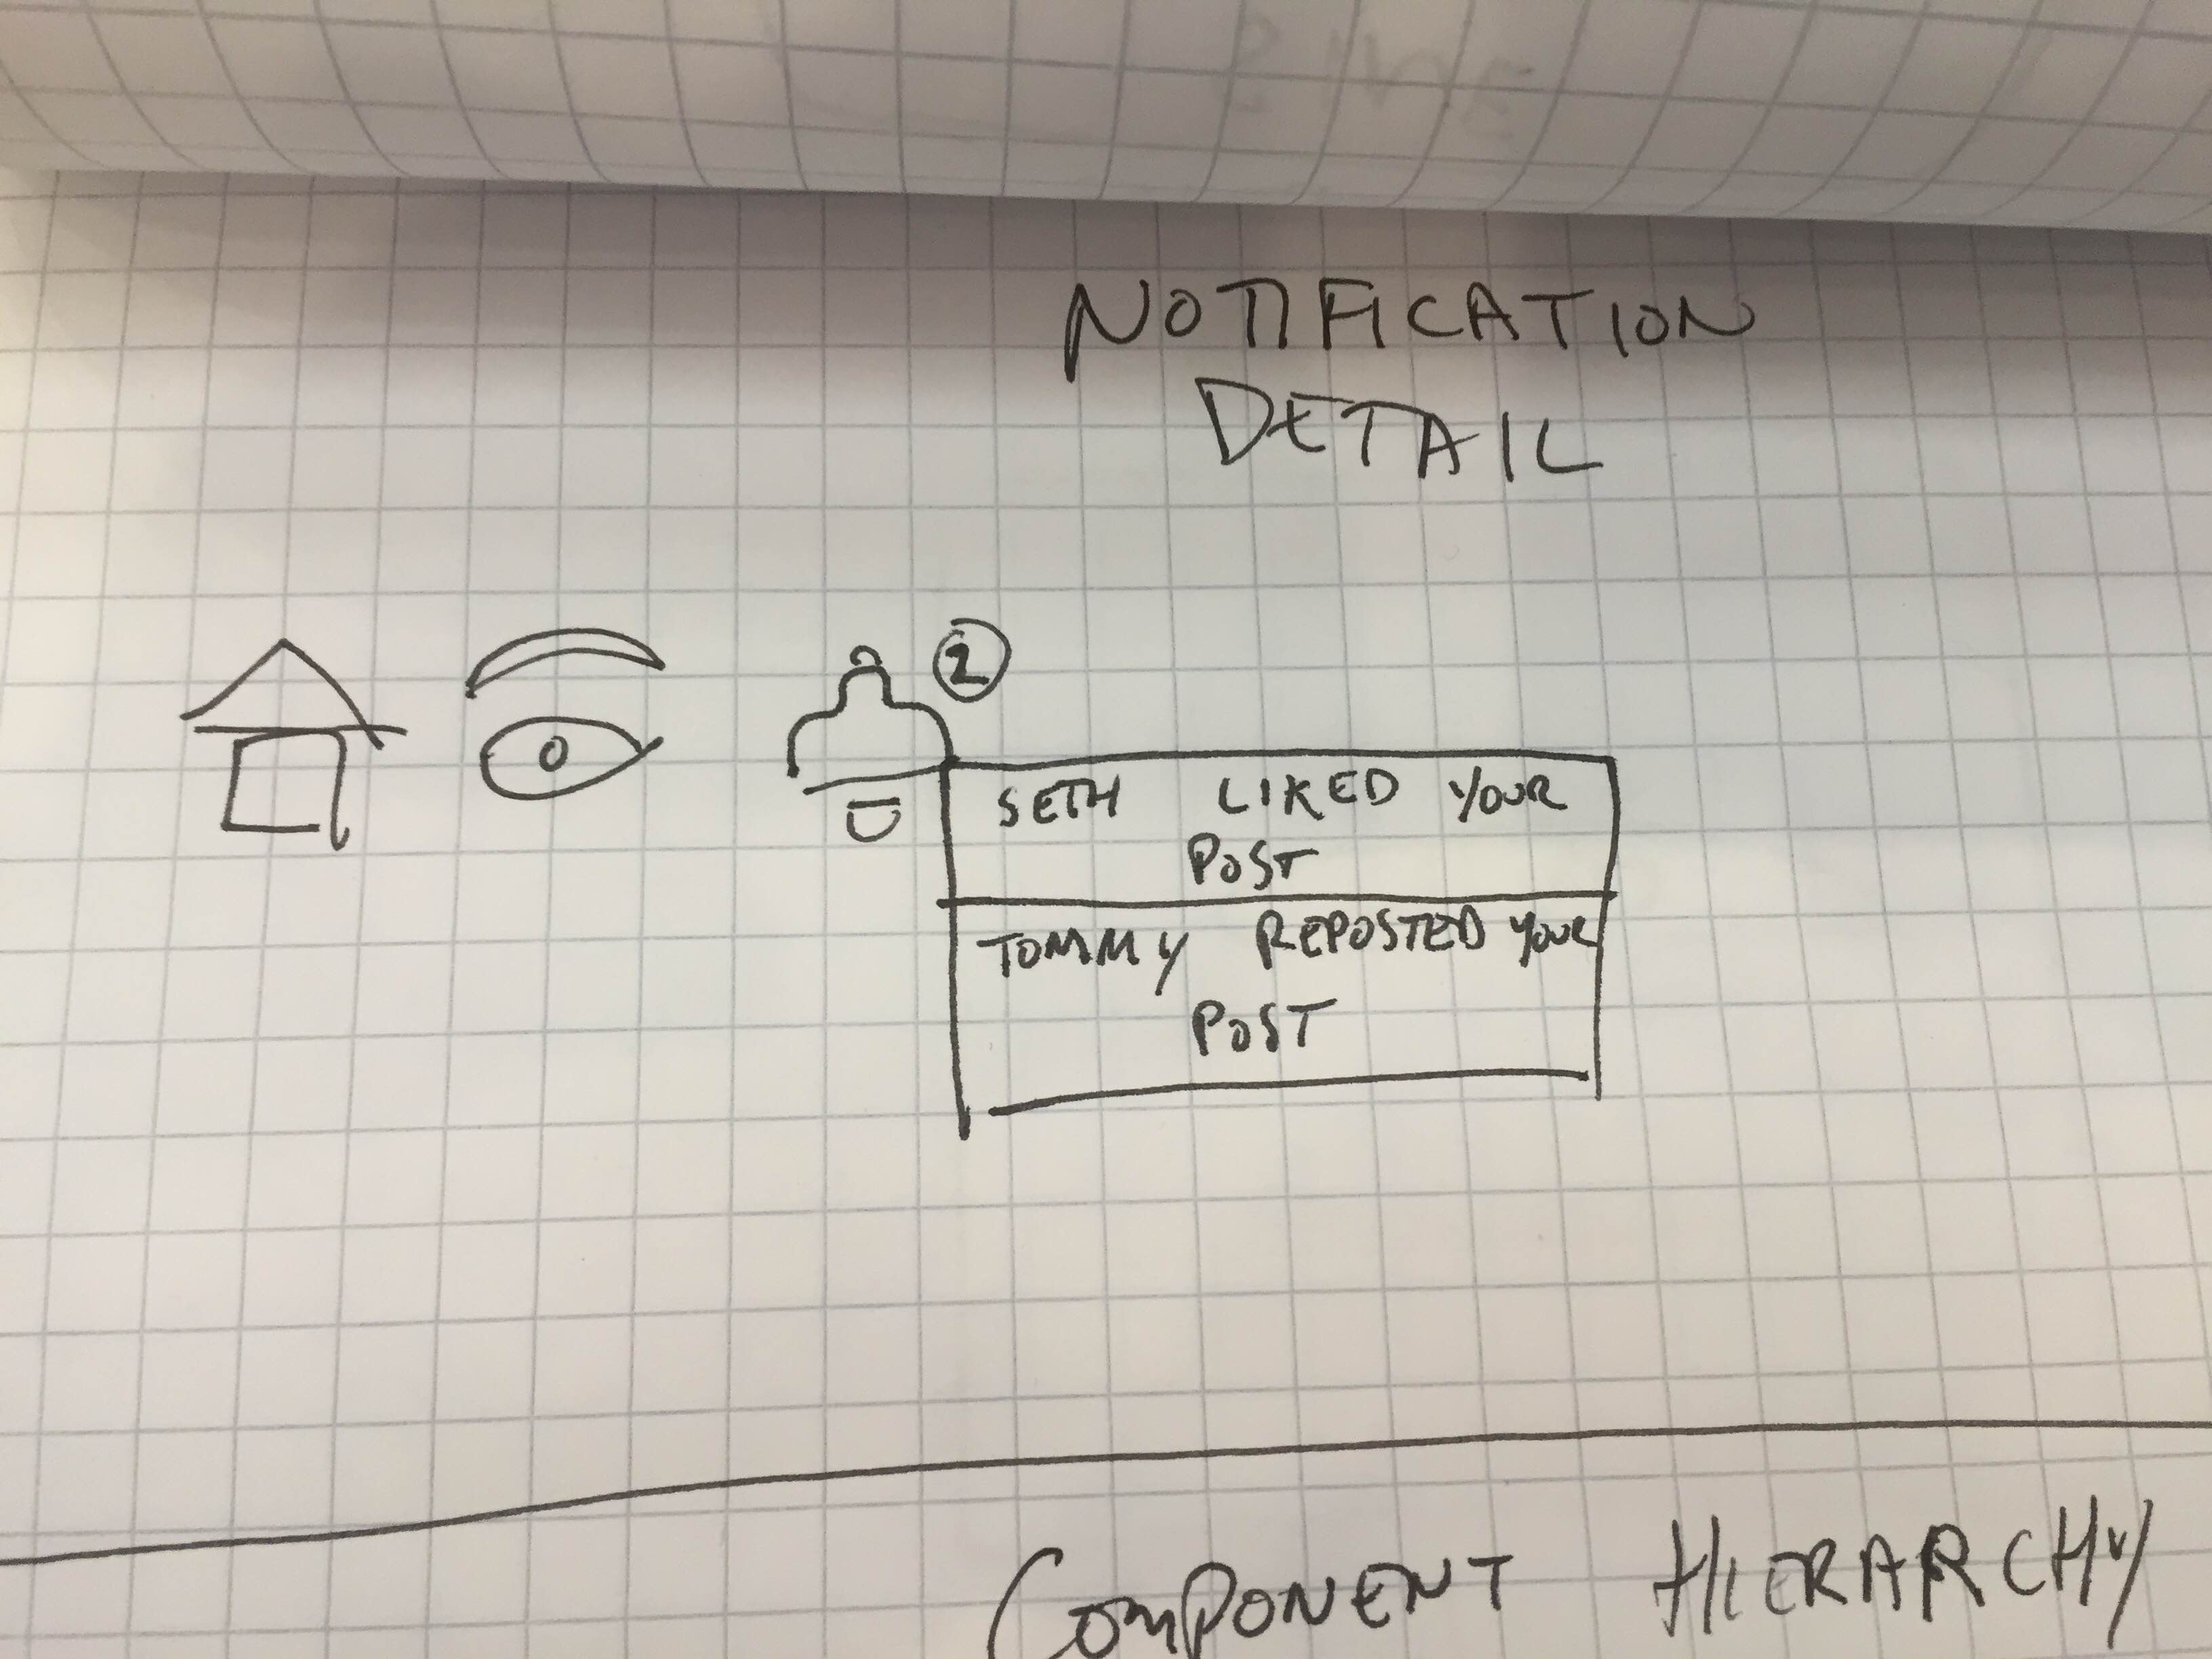 NOTIFICATION
DETAIL
2
SETH LIKED YOUR
POST
TOMMY REPOSTED YOUR
POST
COMPONENT HIERARCHY